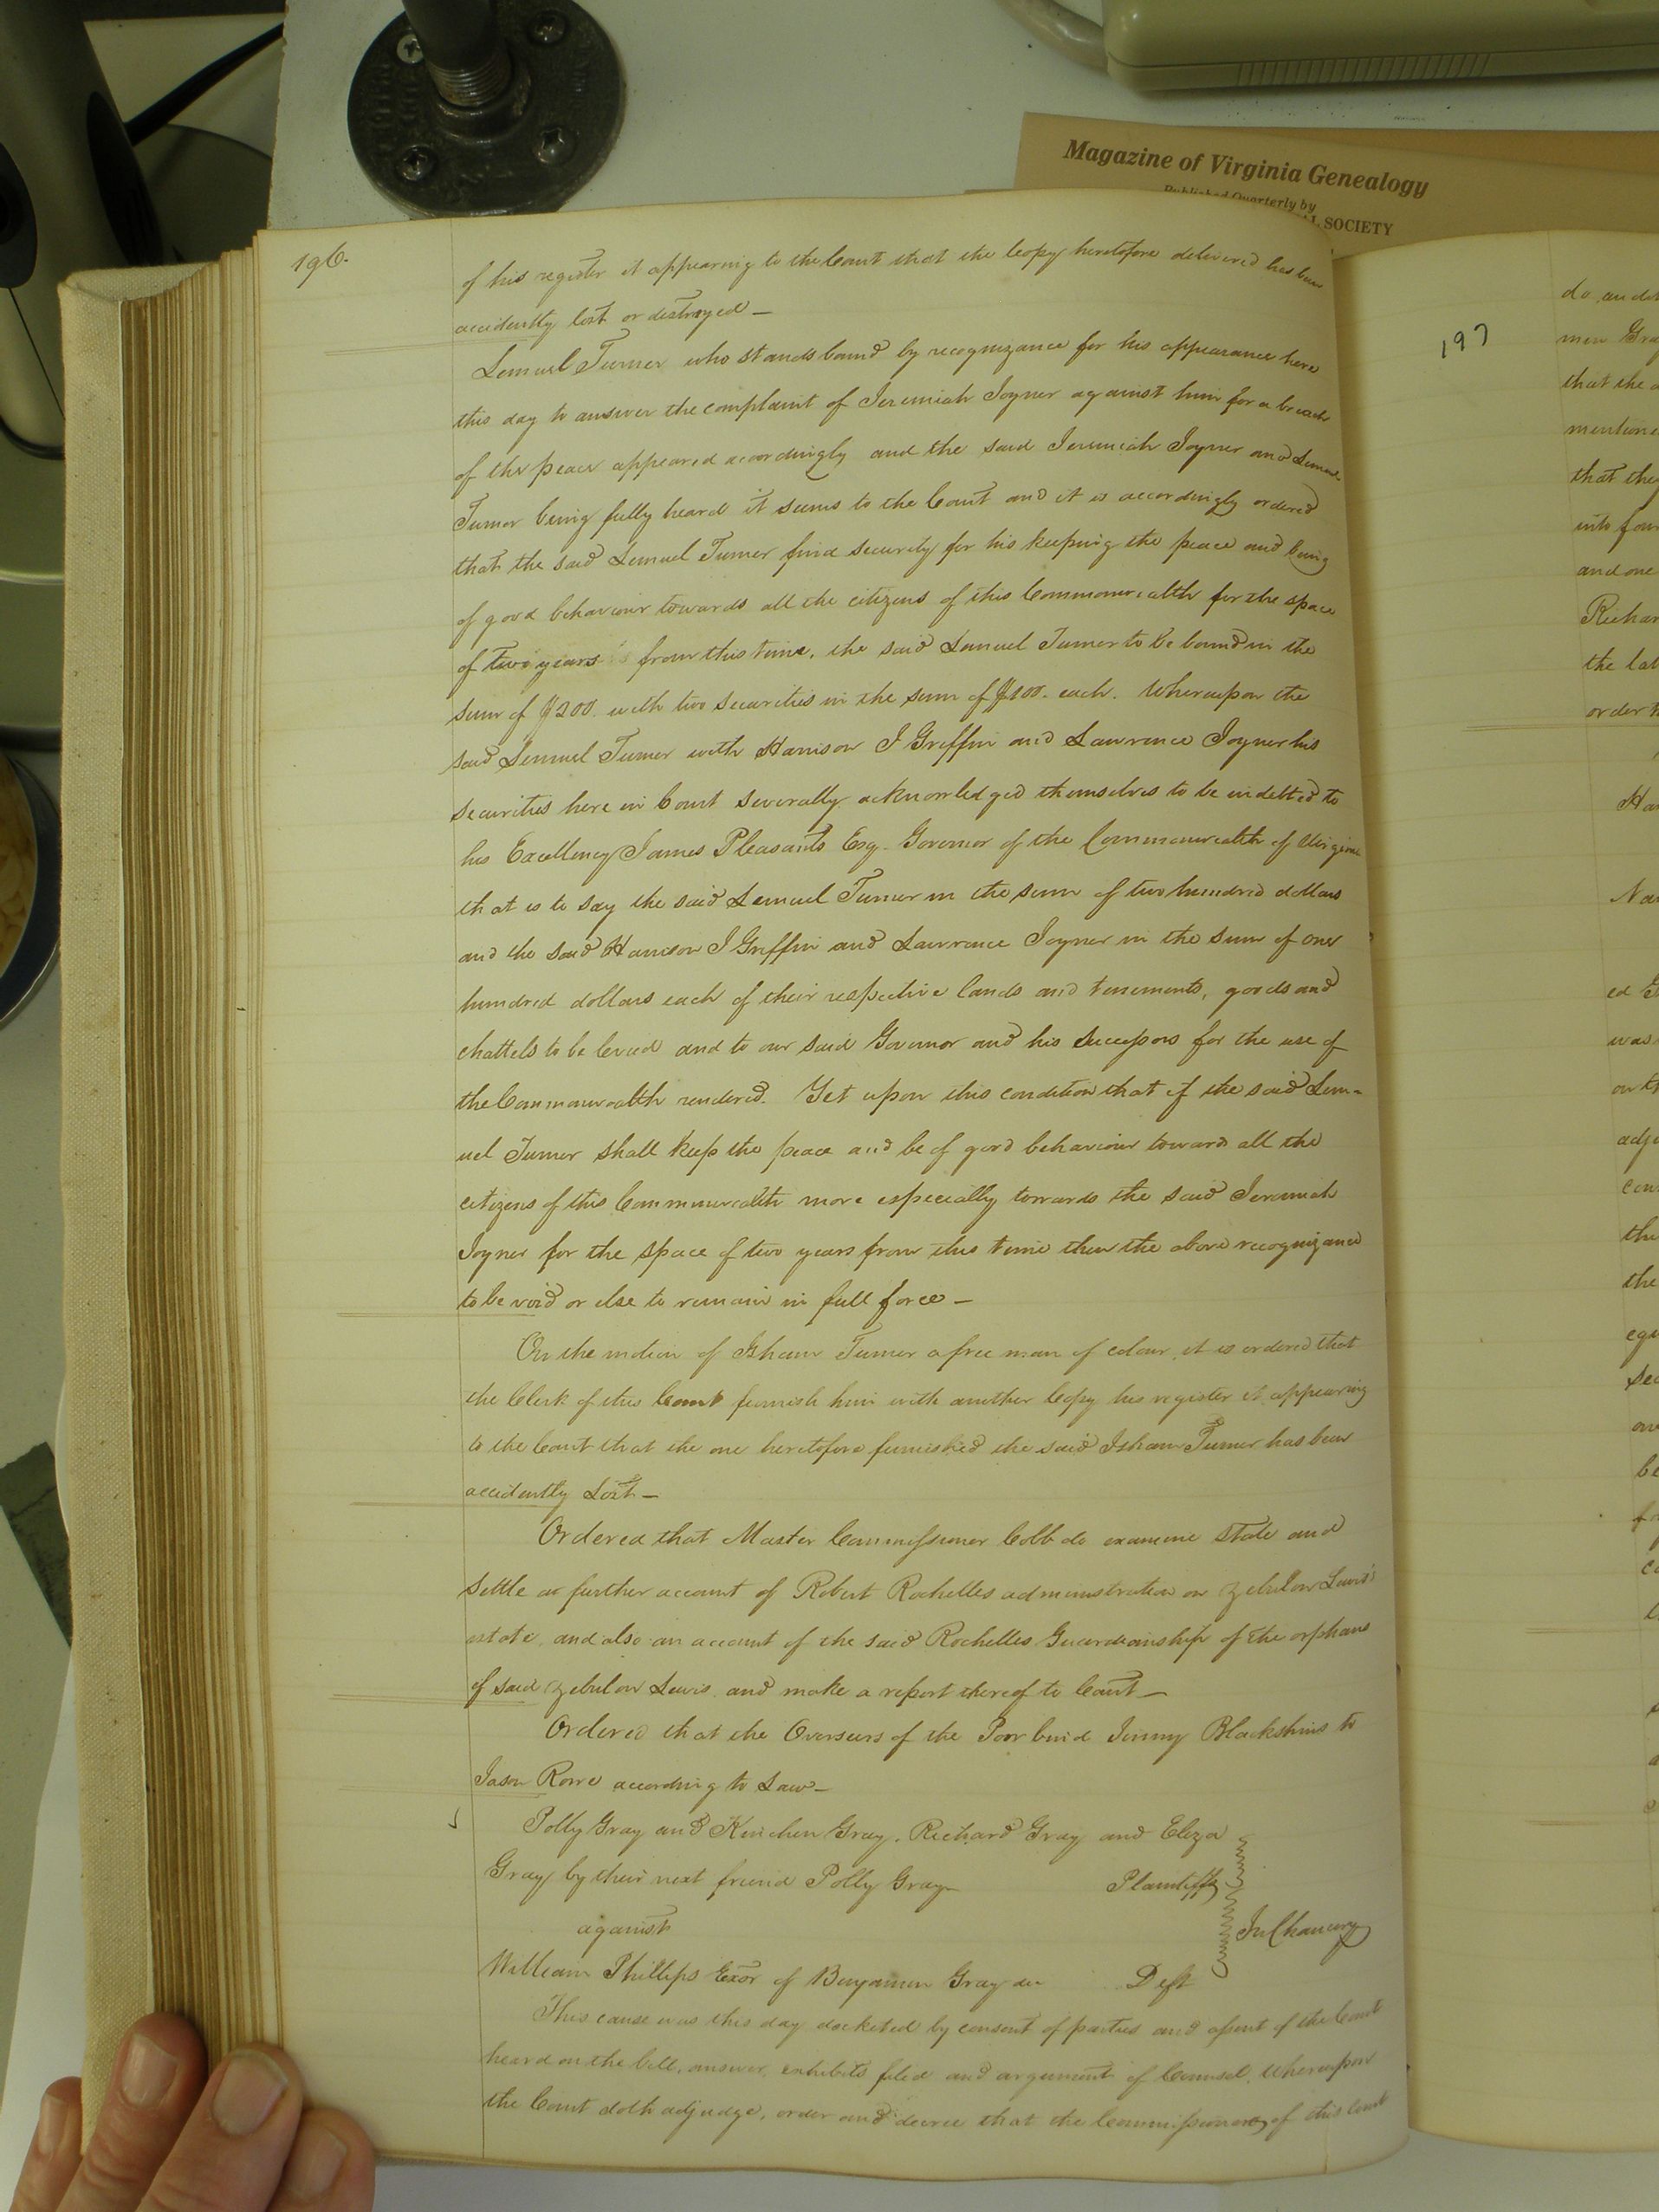 Magazine of Virginia Genealogy
Published Quarterly by
SOCIETY
196.
of his register it appearing to the Court that the Copy heretofore delivered has been
accidently lost or destroyed —
Lemuel Turner who stands bound by recognizance for his appearance here
this day to answer the complaint of Jeremiah Joyner against him for a breach
of the peace appeared accordingly and the said Jeremiah Joyner and Lemuel
Turner being fully heard it seems to the Court and it is accordingly ordered
that the said Lemuel Turner find security for his keeping the peace and being
of good behaviour towards all the citizens of this Commonwealth for the space
of two years from this time, the said Lemuel Turner to be bound in the
sum of $200. with two securities in the sum of $100. each. Whereupon the
said Lemuel Turner with Harrison J Griffin and Lawrence Joyner his
securities here in Court severally acknowledged themselves to be indebted to
his Excellency James Pleasants Esq. Governor of the Commonwealth of Virginia
that is to say the said Lemuel Turner in the sum of two hundred dollars
and the said Harrison J Griffin and Lawrence Joyner in the sum of one
hundred dollars each of their respective lands and tenements, goods and
chattels to be levied and to our said Governor and his Successors for the use of
the Commonwealth rendered. Yet upon this condition that if the said Lem-
uel Turner shall keep the peace and be of good behaviour toward all the
citizens of this Commonwealth more especially towards the said Jeremiah
Joyner for the space of two years from this time then the above recognizance
to be void or else to remain in full force —
On the motion of Isham Turner a free man of colour it is ordered that
the Clerk of this Court furnish him with another Copy his register it appearing
to the Court that the one heretofore furnished the said Isham Turner has been
accidently Lost —
Ordered that Master Commissioner Cobb do examine State and
Settle a further account of Robert Rochelles administration on Zebulon Lewis's
estate, and also an account of the said Rochelles Guardianship of the orphans
of said Zebulon Lewis, and make a report thereof to Court —
Ordered that the Overseers of the Poor bind Jinny Blackshins to
Jason Rowe according to Law —
Polly Gray and Kinchen Gray, Richard Gray and Eliza
Gray by their next friend Polly Gray — Plaintiffs
against
In Chancery
William Phillips Exor of Benjamin Gray dec Deft
This cause was this day docketed by consent of parties and assent of the Court
heard on the bill, answer, exhibits filed and argument of Counsel, Whereupon
the Court doth adjudge, order and decree that the Commissioners of this Court
197
do
men
that the
mentione
that they
into four
and one
Richar
the
order
was
the
the